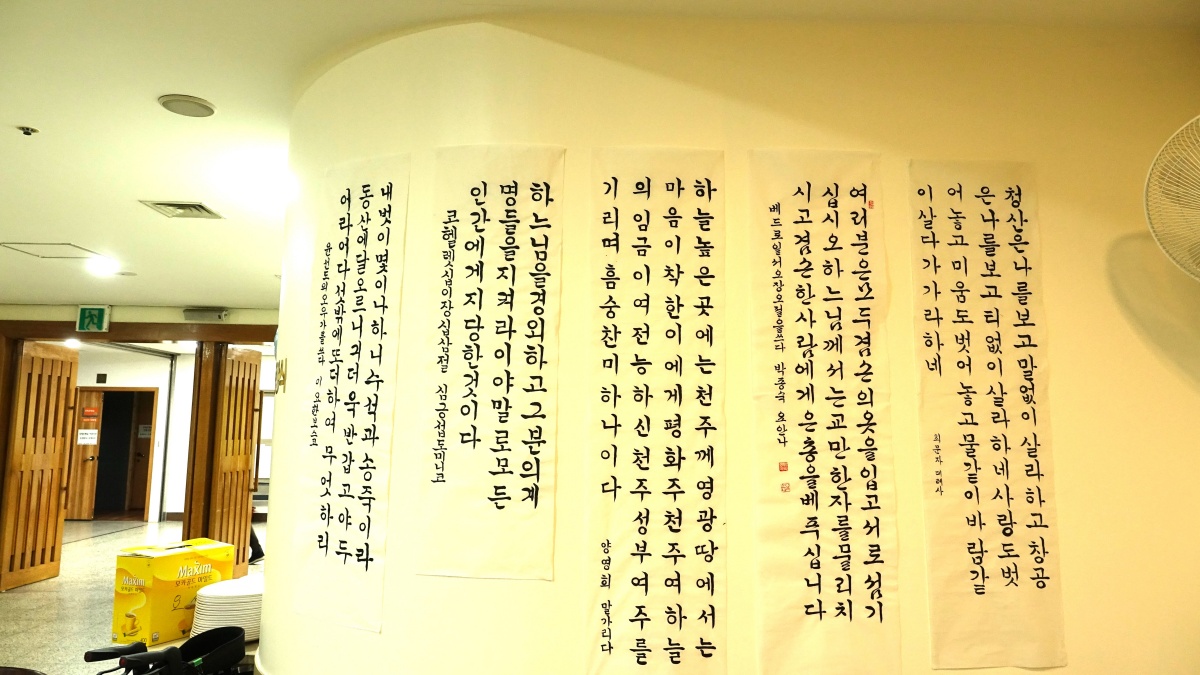 청산은나를보고말없이살라하고창공
은나를보고티없이살라하네사랑도벗
어놓고미움도벗어놓고물같이바람같
이살다가가라하네
최문자 데레사
여러분은모두겸손의옷을입고서로섬기
십시오하느님께서는교만한자를물리치
시고겸손한사람에게은총을베푸십니다
베드로일서오장오절을쓰다 박종숙 요안나
하늘높은곳에는천주께영광땅에서는
마음이착한이에게평화주천주여하늘
의임금이여전능하신천주성부여주를
기리며흠숭찬미하나이다
양영회 말가리다
하느님을경외하고그분의계
명들을지켜라이야말로모든
인간에게지당한것이다
코헬렛십이장십삼절 심궁섭도미니코
내벗이몇이나하니수석과송죽이라
동산에달오르니긔더욱반갑고야두
어라이다섯밖에또더하여무엇하리
윤선도의오우가를쓰다 이요한보스코
Maxim
모카골드 마일드
Maxim